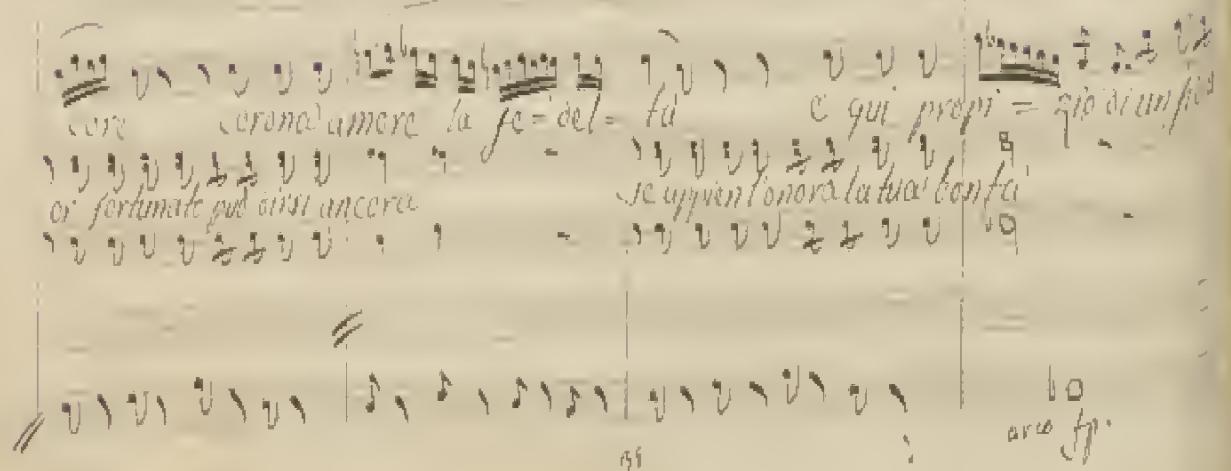 core corona amore la fe = del = tà e qui propi = zio di un
or fortunato può dirsi ancora se appien l'onora la tua bontà
arco fp.